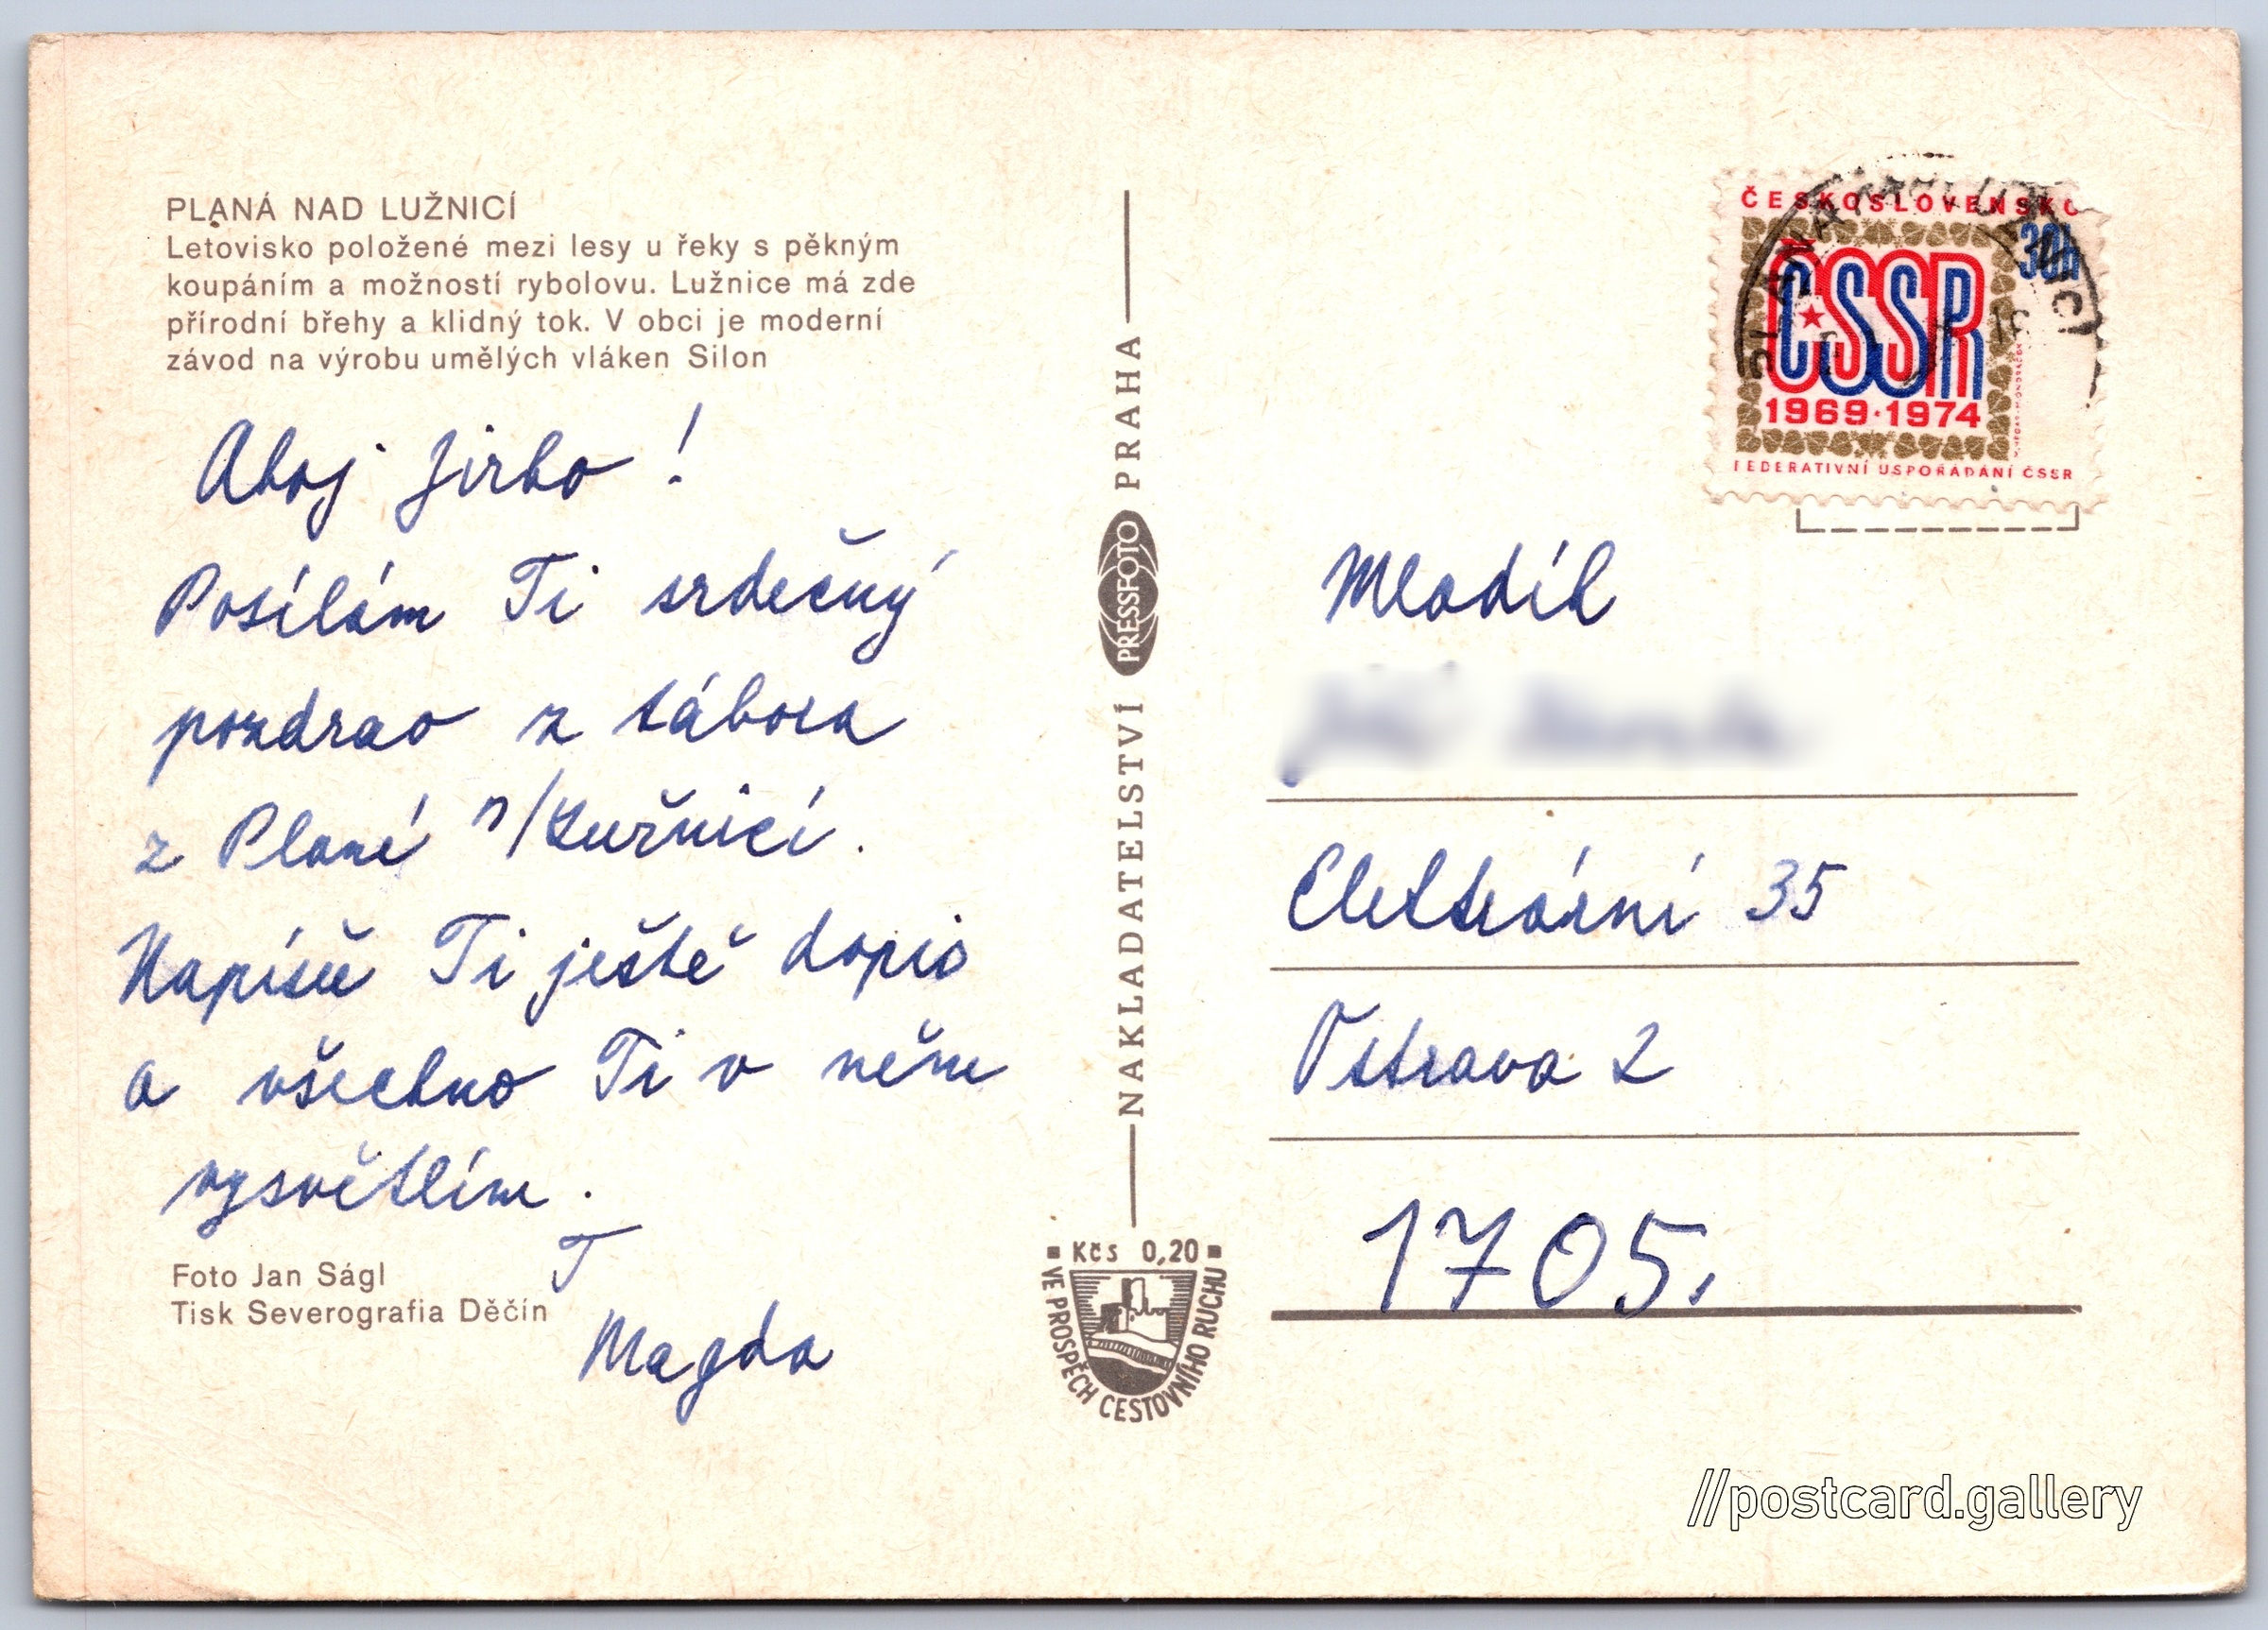 PLANÁ NAD LUŽNICÍ
Letovisko položené mezi lesy u řeky s pěkným
koupáním a možností rybolovu. Lužnice má zde
přírodní břehy a klidný tok. V obci je moderní
závod na výrobu umělých vláken Silon
Ahoj Jirko!
Posílám Ti srdečný
pozdrav z tábora
z Plané n/Lužnicí.
Napíšu Ti ještě dopis
a všechno Ti v něm
vysvětlím.
T
Magda
Foto Jan Ságl
Tisk Severografia Děčín
NAKLADATELSTVÍ PRESSFOTO PRAHA
Kčs 0,20
VE PROSPĚCH CESTOVNÍHO RUCHU
ČESKOSLOVENSKO
30h
ČSSR
1969·1974
FEDERATIVNÍ USPOŘÁDÁNÍ ČSSR
Mladík
Elektrární 35
Ostrava 2
1705.
//postcard.gallery